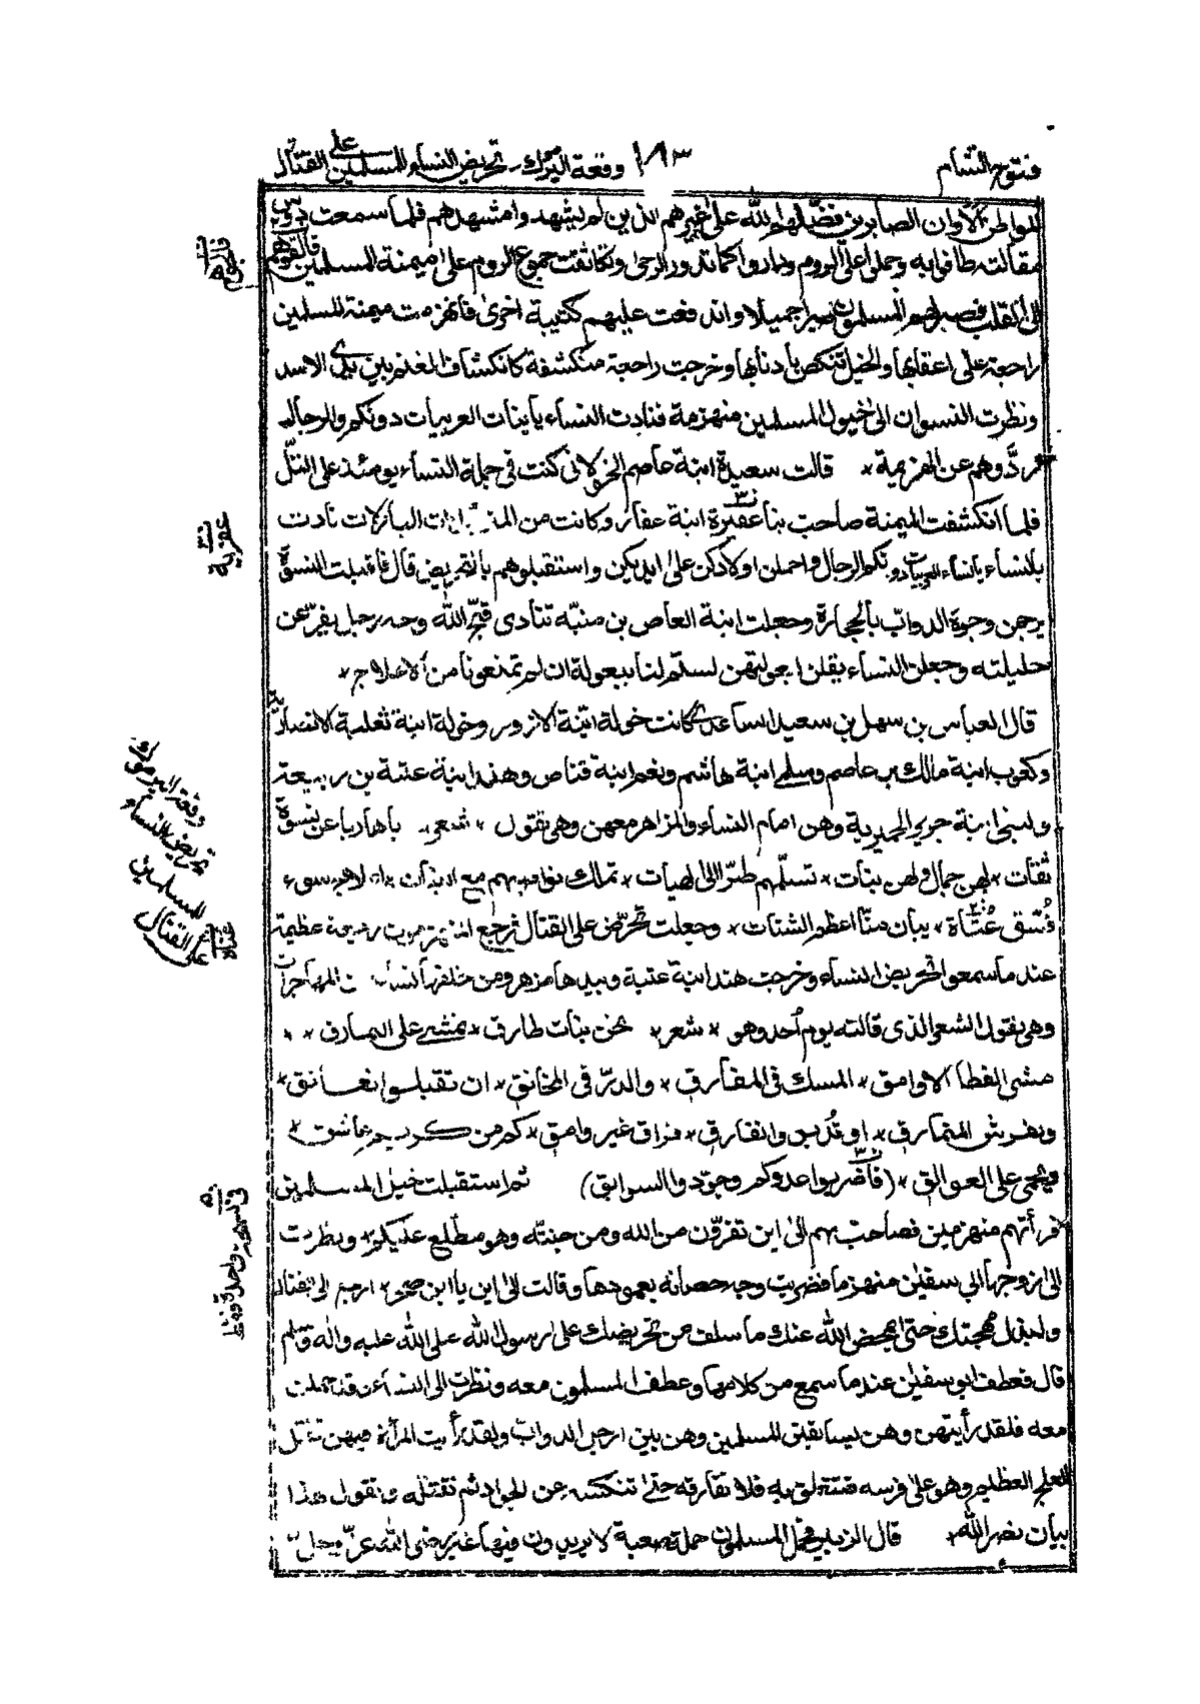 فتوح الشام ١٨٣ وقعة اليرموك تحريض النساء للمسلمين على القتال
المواطن الاوان الصابرين فضلهم الله على غيرهم الذين لم يشهدوا مشهدهم فلما سمعت دوس
مقالته طافوا به وحملوا على الروم وداروا كما تدور الرحى وتكاثفت جموع الروم على ميمنة المسلمين
الى القلب فصبر لهم المسلمون صبرا جميلا واندفعت عليهم كتيبة اخرى فانهزمت ميمنة المسلمين
راجعة على اعقابها والخيل تنكص باذنابها وخرجت راجعة منكشفة كانكشاف الغنم بين يدي الاسد
ونظرت النسوان الى خيول المسلمين منهزمة فنادت النساء يا بنات العربيات دونكم والرجال
ردّوهم عن الهزيمة * قالت سعيدة ابنة عاصم الخولاني كنت في جملة النساء يومئذ على التلّ
فلما انكشفت الميمنة صاحت بنا عفيرة ابنة عفار وكانت من البازلات نادت
يا لنساء يا نساء العربيات دونكم الرجال واحملن اولادكن على ايديكن واستقبلوهم بالتحريض قال فاقبلت النسوة
يرجمن وجوه الدواب بالحجارة وجعلت ابنة العاص بن منبّه تنادى قبح الله وجه رجل يفرّ عن
حليلته وجعلن النساء يقلن لبعولتهن لستم لنا ببعولة ان لم تمنعونا من الاعلاج *
قال العباس بن سهل بن سعيد الساعدي كانت خولة ابنة الازور وخولة ابنة ثعلبة الانصارية
وكعوب ابنة مالك بن عاصم وسلمى ابنة هاشم ونعم ابنة قناص وهند ابنة عتبة بن ربيعة
ولبنى ابنة جرير الحميرية وهن امام النساء والمزاهر معهن وهي تقول * شعر * يا هاربا عن نسوة
ثقات * لهن جمال ولهن بنات * تسلّمهم طرّا الى الهيات * تملك نواصيهم مع البنات *
فُسّق عُتاة * ينان منّا اعظم الشتات * وجعلت تحرّض على القتال فرجع عظيمة
عند ما سمعوا تحريض النساء وخرجت هند ابنة عتبة وبيدها مزهر ومن خلفها المهاجرات
وهي تقول الشعر الذى قالته يوم اُحد وهو * شعر * نحن بنات طارق * نمشي على النمارق * *
مشي القطا الاوامق * المسك في المفارق * والدرّ في المخانق * ان تقبلوا نعانق *
ونفرش النمارق * او تُدبروا نفارق * فراق غير وامق * كم من كريم عاشق *
يحمى على العوالق * (فاضربوا عدوكم وجوّدوا السوابق) ثم استقبلت خيل المسلمين
فرأتهم منهزمين فصاحت بهم الى اين تفرّون من الله ومن جنته وهو مطّلع عليكم ونظرت
الى زوجها ابي سفيان منهزما فضربت وجه حصانه بعمودها وقالت الى اين يا ابن صخر ارجع الى القتال
وابذل مهجتك حتى يمحض الله عنك ما سلف من تحريضك على رسول الله صلى الله عليه واله وسلم
قال فعطف ابو سفيان عند ما سمع من كلامها وعطف المسلمون معه ونظرت الى النساء وقد حملن
معه فلقد رأيتهن وهن يسابقن المسلمين وهن بين ارجل الدواب ولقد رأيت المرأة منهن تقبل
العلج العظيم وهو على فرسه فتتعلق به فلا تفارقه حتى تنكسه عن الجواد ثم تقتله وتقول هذا
بيان نصر الله * قال الزبير فحمل المسلمون حملة صعبة لا يريدون فيها غير رضى الله عزّ وجلّ
وقعة اليرموك
تحريض النساء
للمسلمين
على القتال